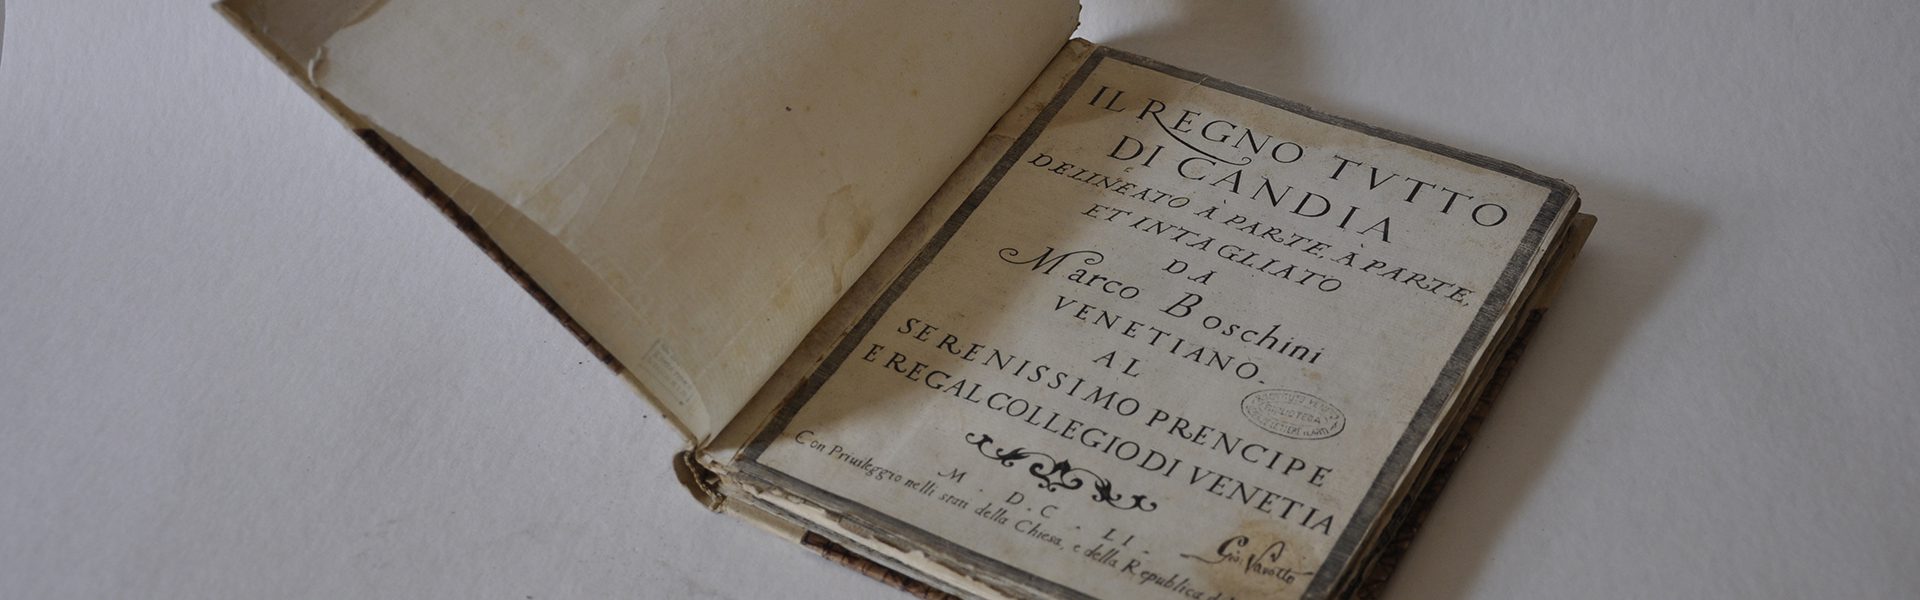 IL REGNO TVTTO
DI CANDIA
DELINEATO À PARTE, À PARTE,
ET INTAGLIATO
DA
Marco Boschini
VENETIANO.
AL
SERENISSIMO PRENCIPE
E REGAL COLLEGIO DI VENETIA
M. D. C. LI.
Con Priuileggio nelli stati della Chiesa, e della Republica
BIBLIOTECA